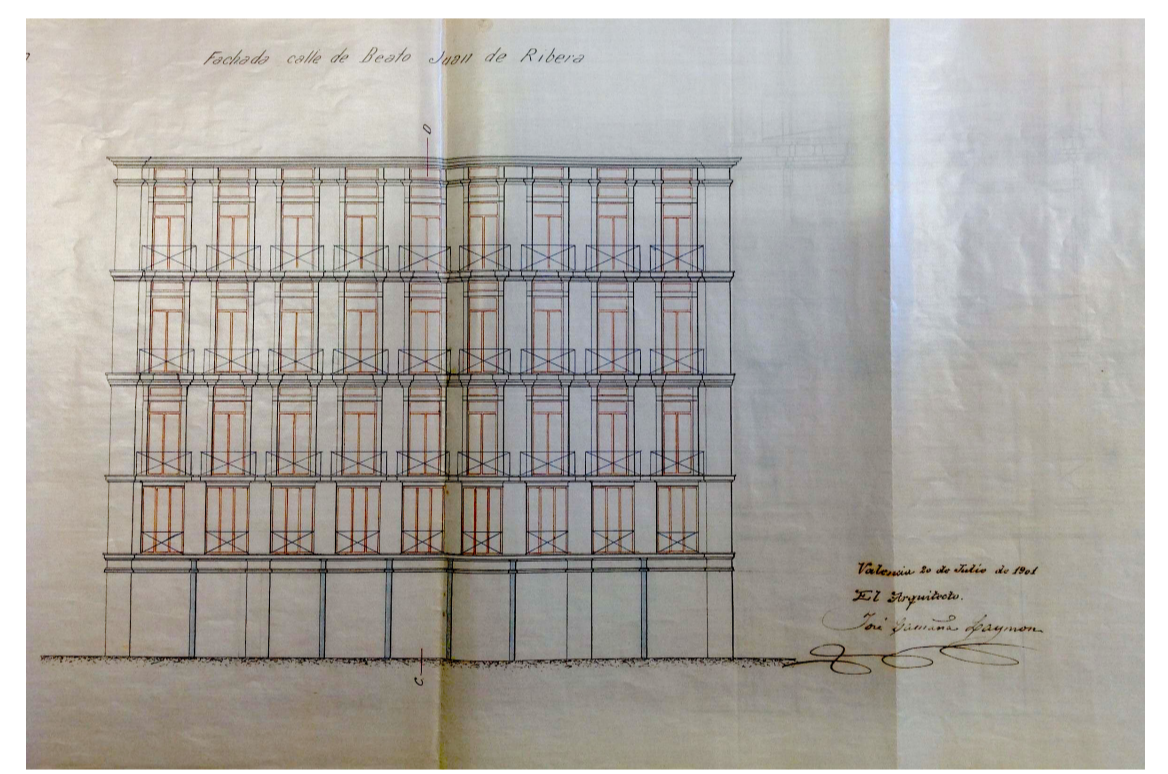 Fachada calle de Beato Juan de Ribera
D
C
Valencia 20 de Julio de 1901
El Arquitecto.
José Camaña Laymon